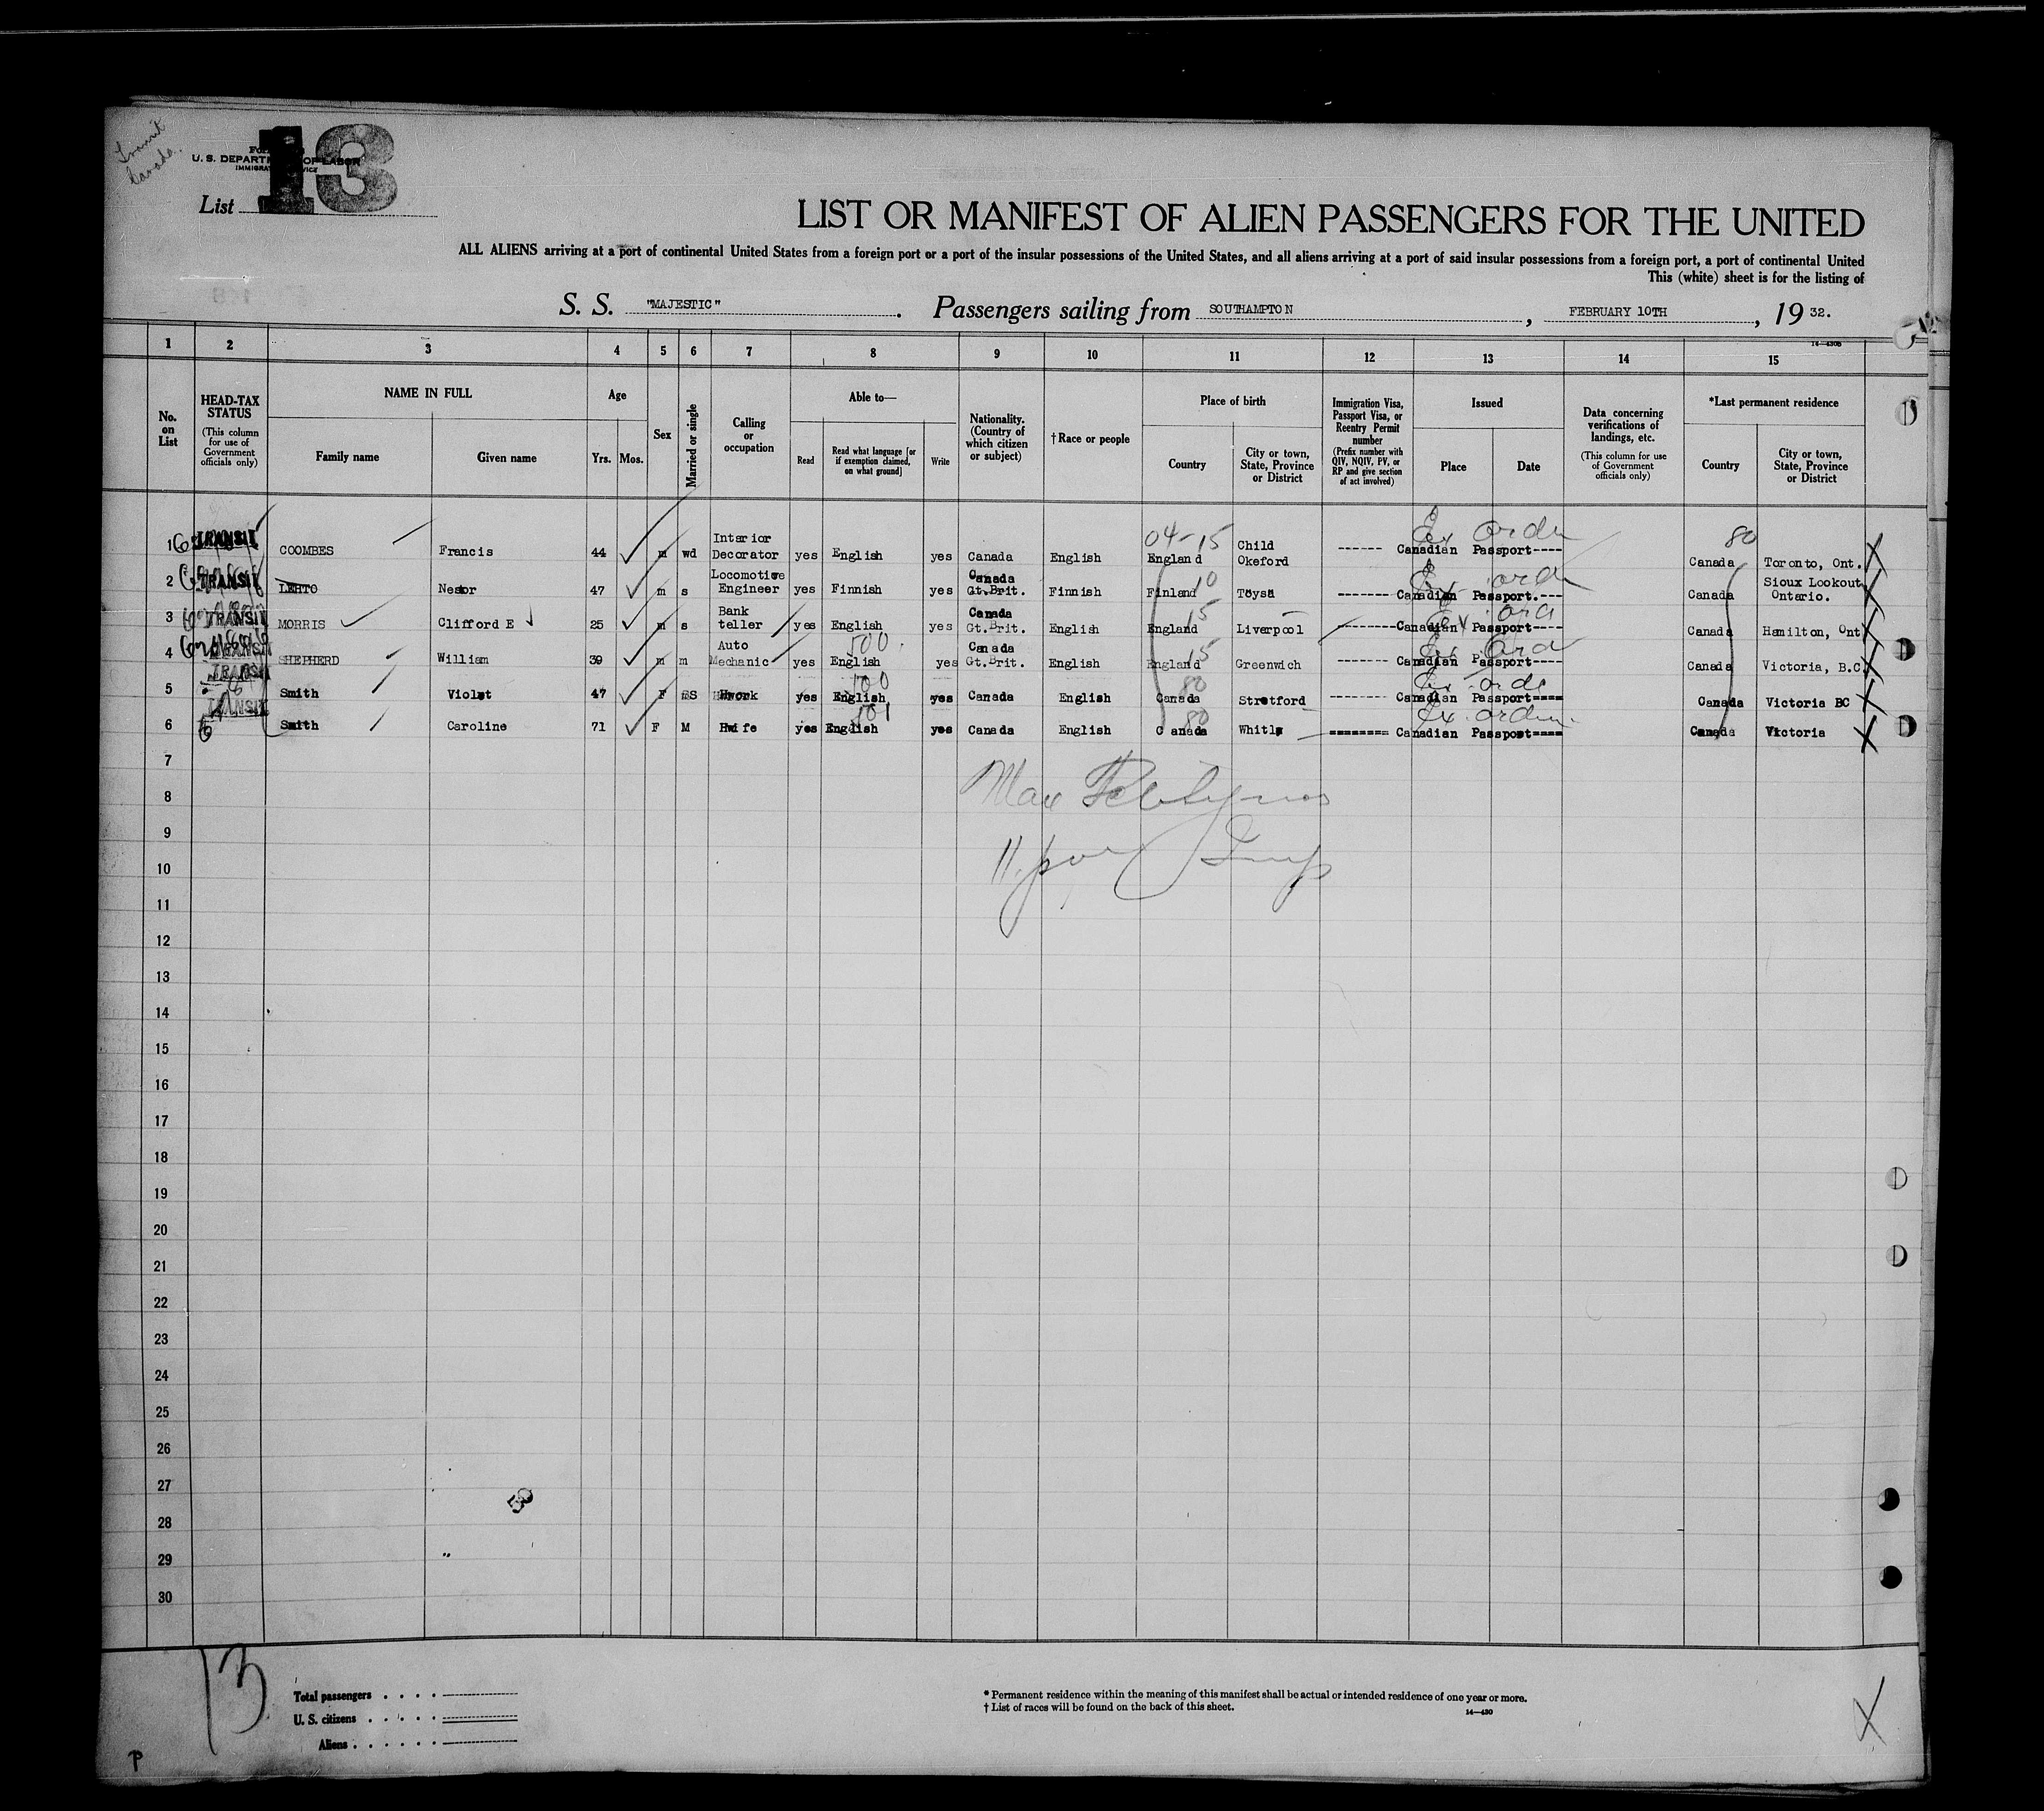 Transit
Canada.
13
U. S. DEPARTMENT OF LABOR
List
LIST OR MANIFEST OF ALIEN PASSENGERS FOR THE UNITED
ALL ALIENS arriving at a port of continental United States from a foreign port or a port of the insular possessions of the United States, and all aliens arriving at a port of said insular possessions from a foreign port, a port of continental United
This (white) sheet is for the listing of
S. S. "MAJESTIC". Passengers sailing from SOUTHAMPTON, FEBRUARY 10TH, 19 32.
14—430B
1 2 3 4 5 6 7 8 9 10 11 12 13 14 15
No. on List
HEAD-TAX STATUS
(This column for use of Government officials only)
NAME IN FULL
Family name
Given name
Age
Yrs.
Mos.
Sex
Married or single
Calling or occupation
Able to—
Read
Read what language [or if exemption claimed, on what ground]
Write
Nationality. (Country of which citizen or subject)
† Race or people
Place of birth
Country
City or town, State, Province or District
Immigration Visa, Passport Visa, or Reentry Permit number
(Prefix number with QIV, NQIV, PV, or RP and give section of act involved)
Issued
Place
Date
Data concerning verifications of landings, etc.
(This column for use of Government officials only)
*Last permanent residence
Country
City or town, State, Province or District
1 TRANSIT COOMBES Francis 44 m wd Interior Decorator yes English yes Canada English 04-15 England Child Okeford ------ Canadian Passport---- Ex order 80 Canada Toronto, Ont.
2 TRANSIT LEHTO Nestor 47 m s Locomotive Engineer yes Finnish yes Canada Gt.Brit. Finnish 10 Finland Töysä ------ Canadian Passport.--- Canada Sioux Lookout Ontario.
3 TRANSIT MORRIS Clifford E 25 m s Bank teller yes English yes Canada Gt.Brit. English 15 England Liverpool ------ Canadian Passport---- Canada Hamilton, Ont
4 TRANSIT SHEPHERD William 39 m m Auto Mechanic yes English 500 yes Canada Gt.Brit. English 15 England Greenwich ------ Canadian Passport---- Canada Victoria, B.C
5 TRANSIT Smith Violet 47 F S Hwork yes English yes Canada English 80 Canada Stratford ------ Canadian Passport==== Canada Victoria BC
6 TRANSIT Smith Caroline 71 F M Hwife yes English yes Canada English 80 Canada Whitla ======== Canadian Passport==== Ex. order Canada Victoria
7
8
9
10
11
12
13
14
15
16
17
18
19
20
21
22
23
24
25
26
27
28
29
30
13
Total passengers . . . .
U. S. citizens . . . . .
Aliens . . . . . .
* Permanent residence within the meaning of this manifest shall be actual or intended residence of one year or more.
† List of races will be found on the back of this sheet.
14—430
P
X